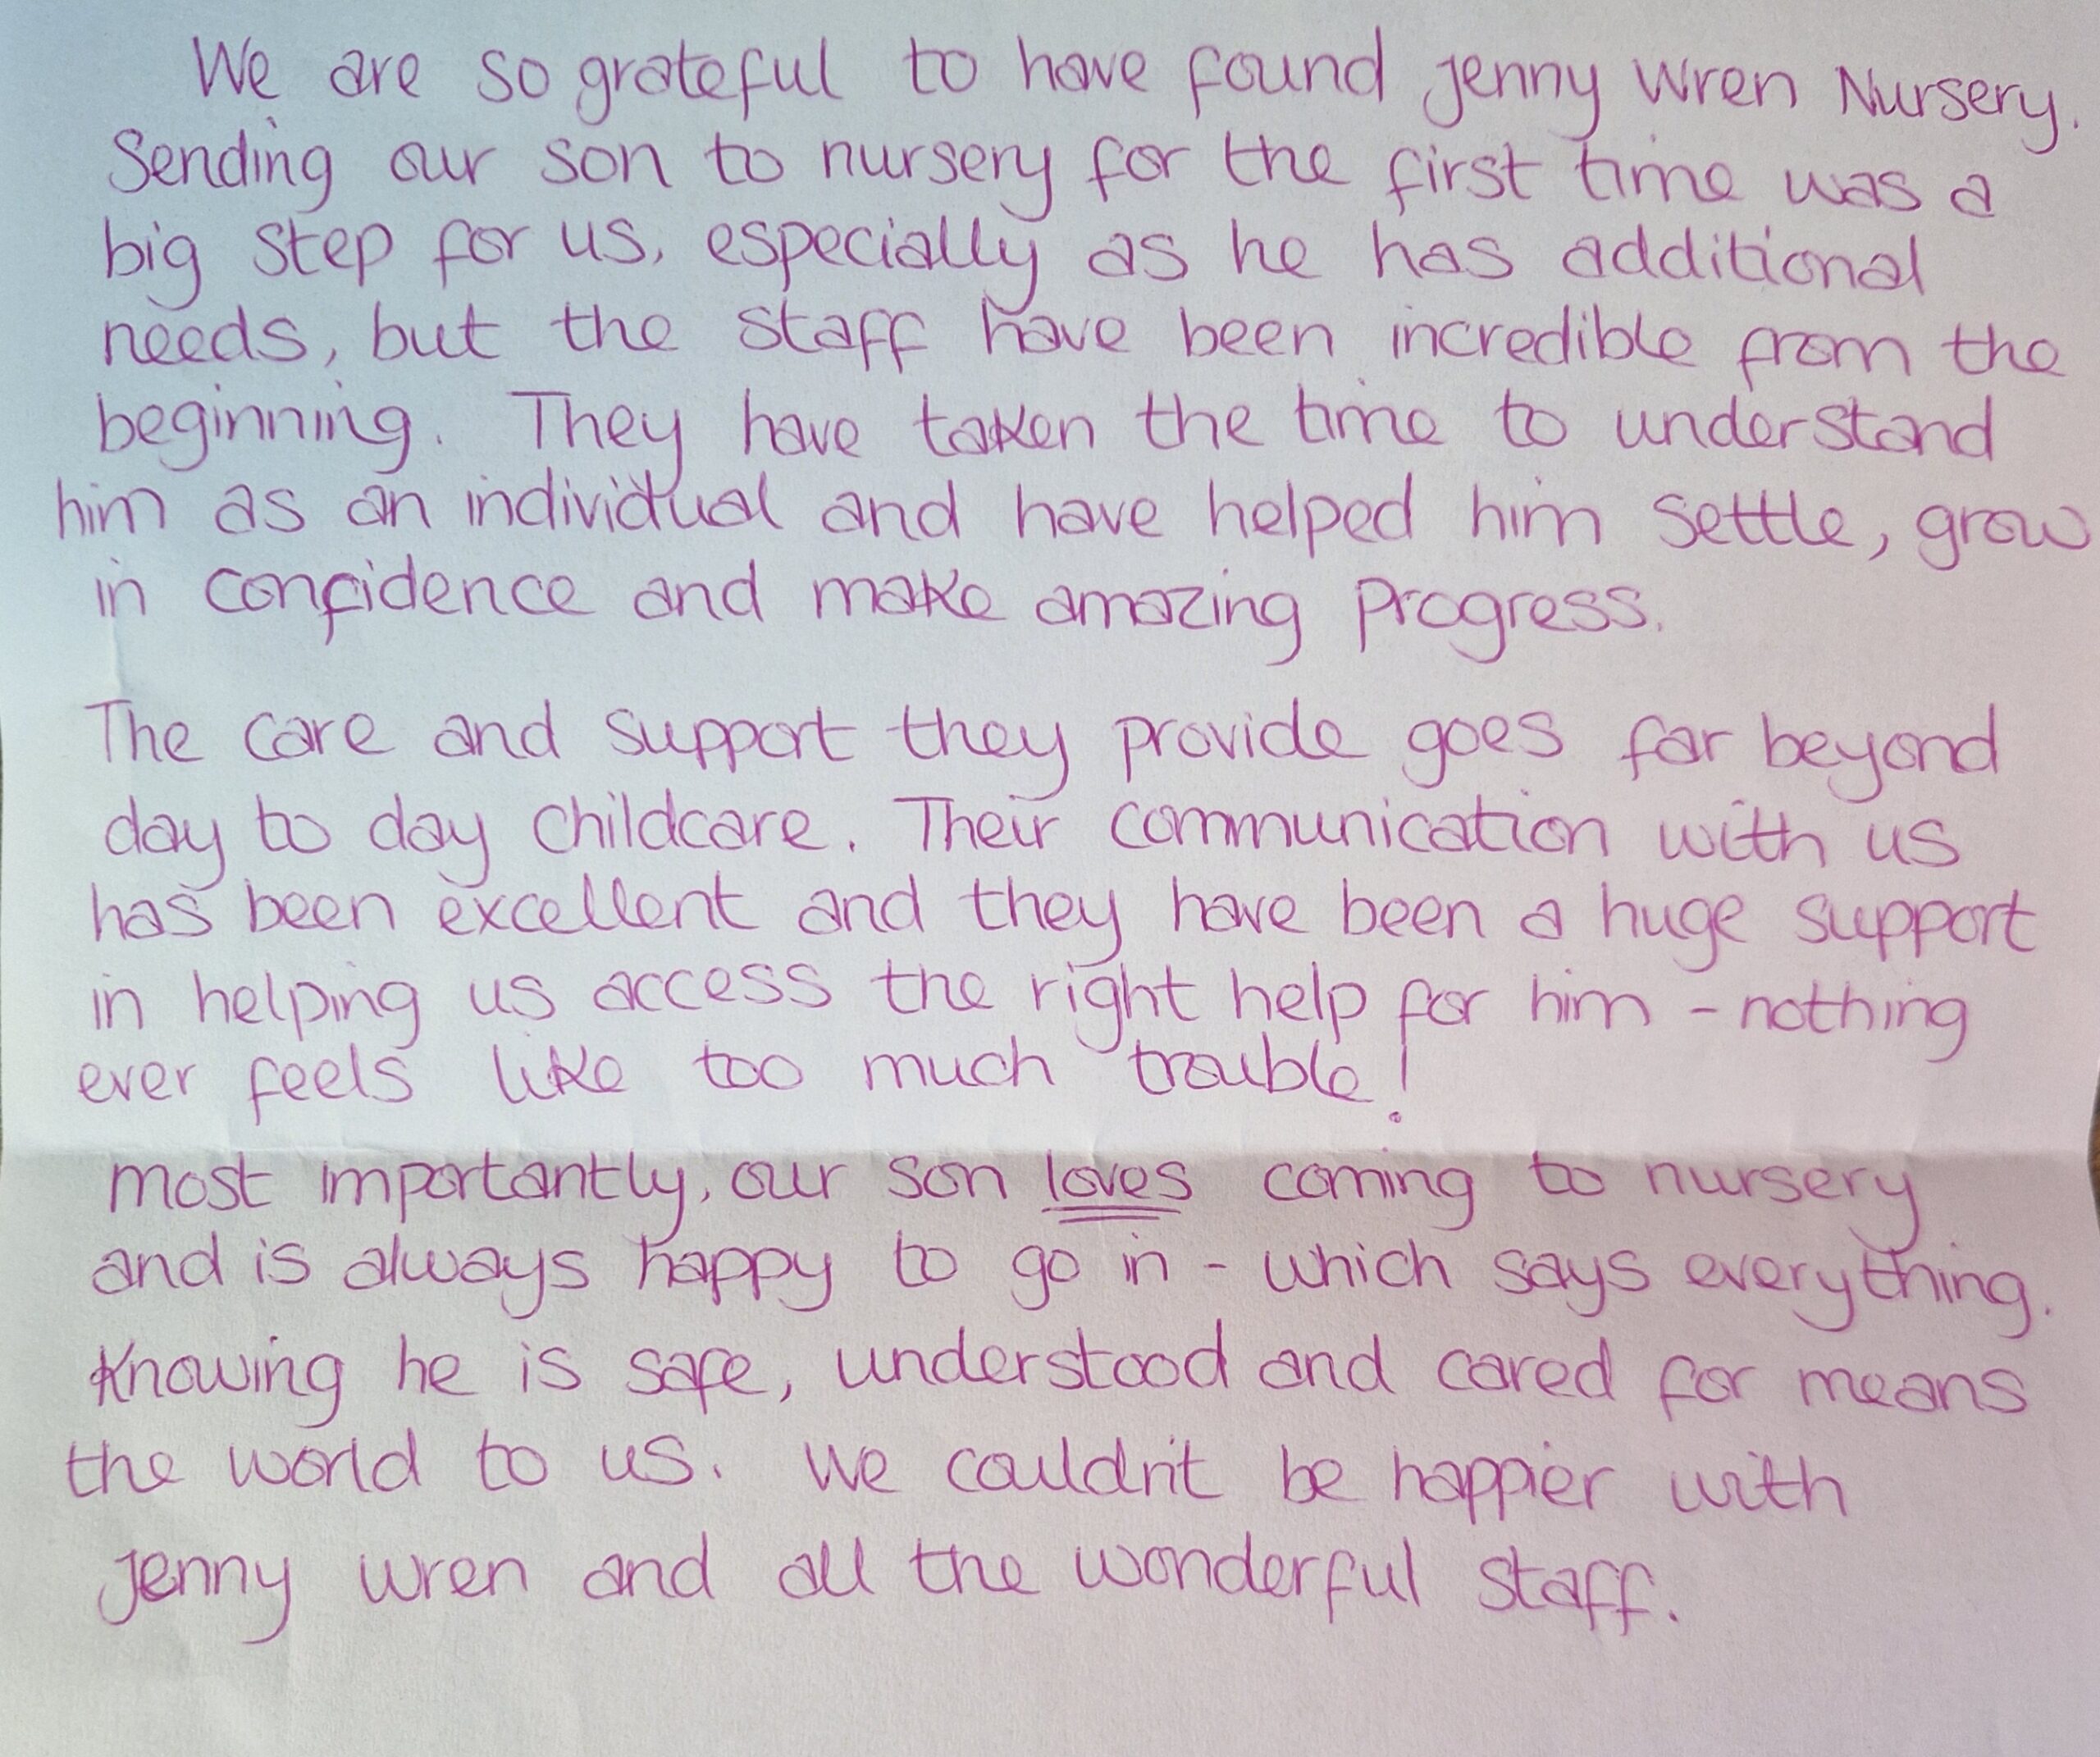 We are so grateful to have found Jenny Wren Nursery.
Sending our son to nursery for the first time was a
big step for us, especially as he has additional
needs, but the staff have been incredible from the
beginning. They have taken the time to understand
him as an individual and have helped him settle, grow
in confidence and make amazing progress.
The care and support they provide goes far beyond
day to day childcare. Their communication with us
has been excellent and they have been a huge support
in helping us access the right help for him - nothing
ever feels like too much trouble!
most importantly, our son loves coming to nursery
and is always happy to go in - which says everything.
Knowing he is safe, understood and cared for means
the world to us. We couldn't be happier with
Jenny Wren and all the wonderful staff.